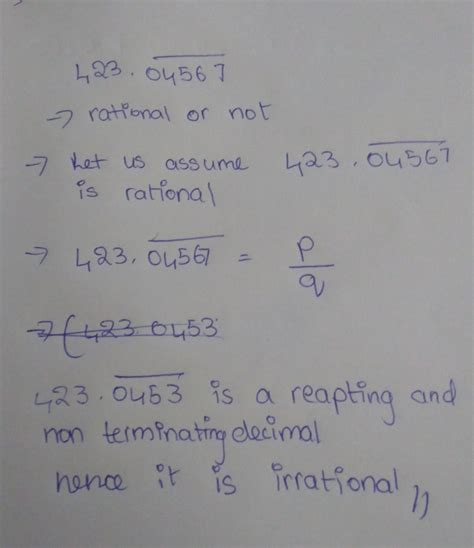 423.0̅4̅5̅6̅7̅
→ rational or not
→ Let us assume 423.0̅4̅5̅6̅7̅
is rational
→ 423.0̅4̅5̅6̅7̅ = p/q
→ (423 0453
423.0̅4̅5̅3̅ is a reapting and
non terminating decimal
hence it is irrational //